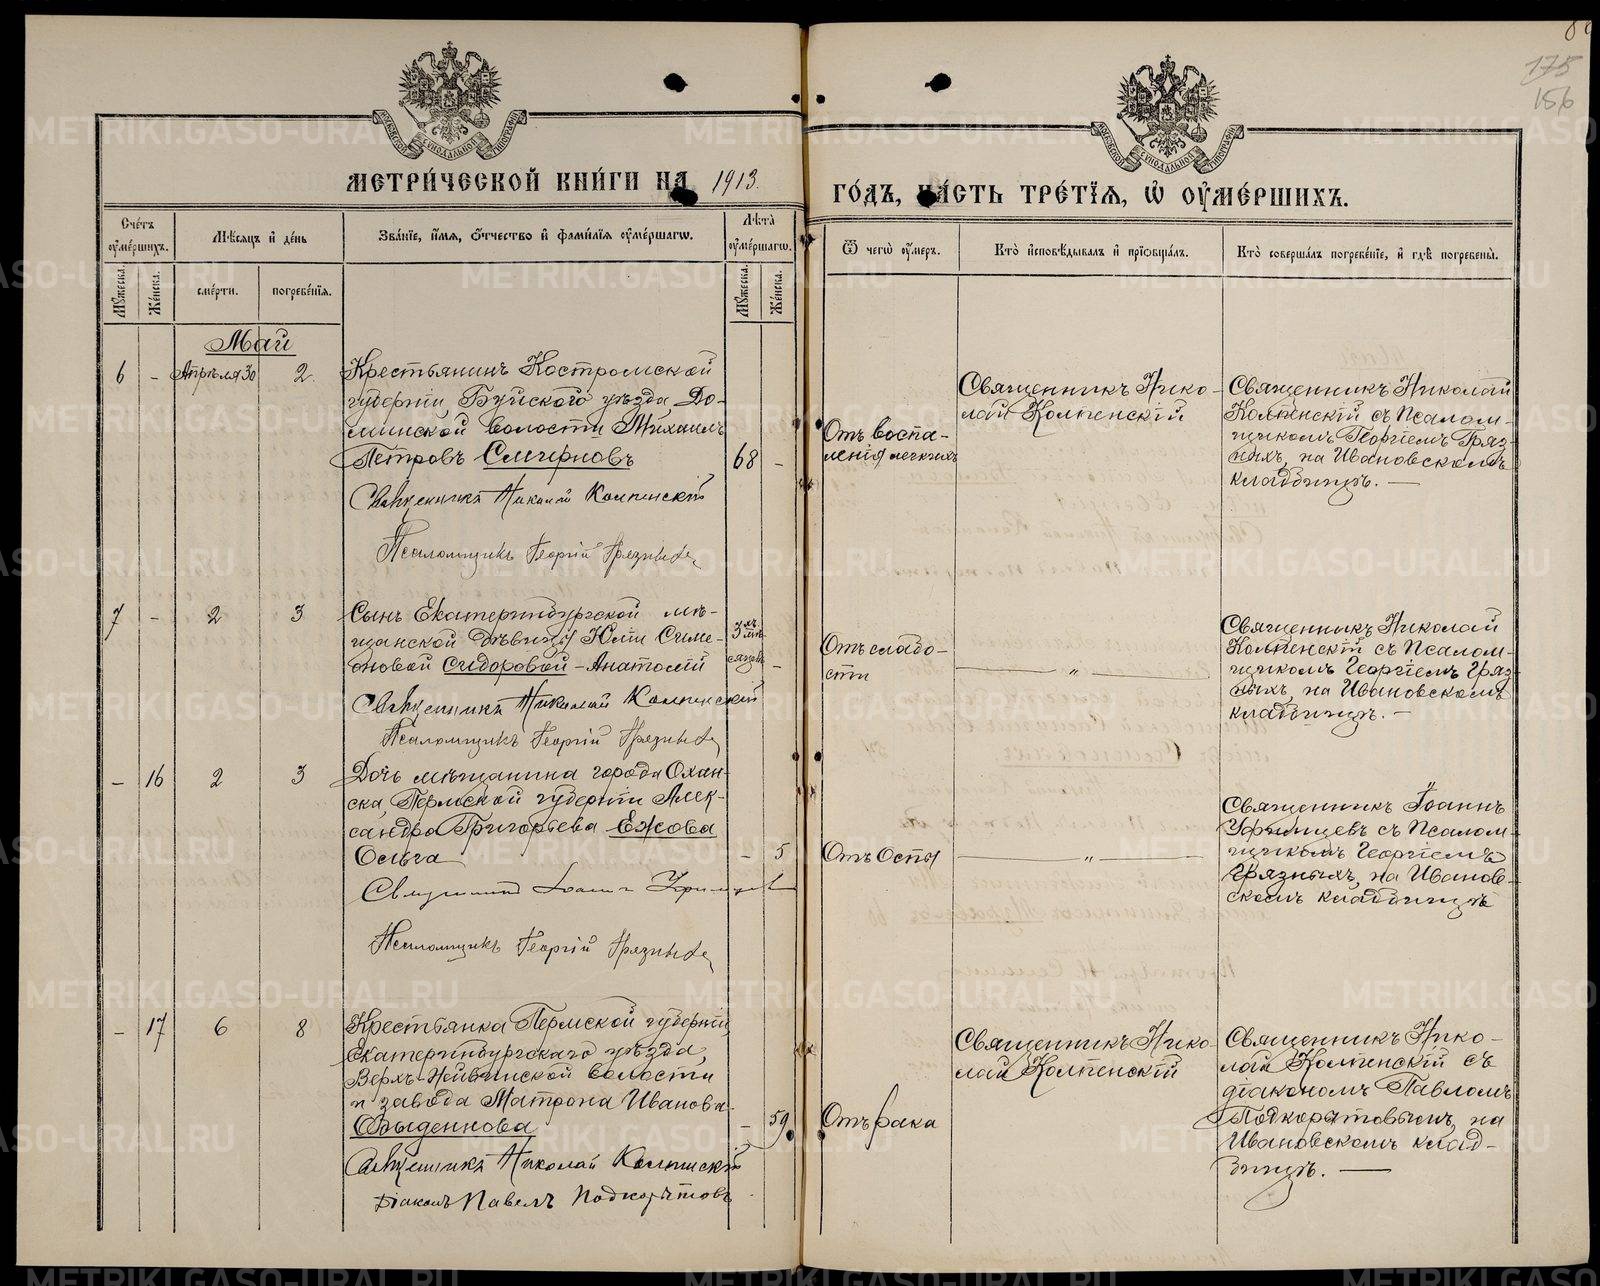 175
156
МОСКОВСКОЙ СѴНОДАЛЬНОЙ ТИПОГРАФІИ
МОСКОВСКОЙ СѴНОДАЛЬНОЙ ТИПОГРАФІИ
МЕТРИ́ЧЕСКОЙ КНИ́ГИ НА 1913.
ГО́ДЪ, ЧА́СТЬ ТРЕ́ТЇѦ, Ѡ҆ ОУ҆МЕ́РШИХЪ.
Сче́тъ оу҆ме́ршихъ.
Мѣ́сяцъ и҆ де́нь
Зва́нїе, и҆́мя, о҆́тчество и҆ фами́лїя оу҆ме́ршагѡ.
Лѣ́та оу҆ме́ршагѡ.
Ѿ чегѡ̀ оу҆́меръ.
Кто̀ и҆сповѣ́дывалъ и҆ прїѡбща́лъ.
Кто̀ соверша́лъ погребе́нїе, и҆ гдѣ̀ погребены̀.
Мꙋ́жеска.
Же́нска.
сме́рти.
погребе́нїя.
Мꙋ́жеска.
Же́нска.
Май
6 - Апрѣля 30 2.
Крестьянинъ Костромской
губерніи Буйского уѣзда До-
минской волости Михаилъ
Петровъ Смирновъ
68 -
Священникъ Николай Колпенскій
Псаломщикъ Георгій Грязныхъ
Отъ воспа-
ленія легкихъ
Священникъ Нико-
лай Колпенскій
Священникъ Николай
Колпенскій съ Псалом-
щикомъ Георгіемъ Гряз-
ныхъ, на Ивановскомъ
кладбищѣ. —
7 - 2 3
Сынъ Екатеринбургской мѣ-
щанской дѣвицы Юліи Симе-
оновой Сидоровой - Анатолій
3хъ мѣ-
сяцевъ -
Священникъ Николай Колпенскій
Псаломщикъ Георгій Грязныхъ
Отъ слабо-
сти
— „ —
Священникъ Николай
Колпенскій съ Псалом-
щикомъ Георгіемъ Гряз-
ныхъ, на Ивановскомъ
кладбищѣ. —
- 16 2 3
Дочь мѣщанина города Охан-
ска, Пермской губерніи Алек-
сандра Григорьева Ежова
Ольга
- 5
Священникъ Іоаннъ Уфимцевъ
Псаломщикъ Георгій Грязныхъ
Отъ Оспы
— „ —
Священникъ Іоаннъ
Уфимцевъ съ Псалом-
щикомъ Георгіемъ
Грязныхъ, на Иванов-
скомъ кладбищѣ
- 17 6 8
Крестьянка Пермской губерніи,
Екатеринбургскаго уѣзда,
Верхъ-Нейвинской волости
и завода Матрона Иванова
Обыденнова
- 59
Священникъ Николай Колпенскій
Діаконъ Павелъ Подкорытовъ
Отъ рака
Священникъ Нико-
лай Колпенскій
Священникъ Нико-
лай Колпенскій съ
діакономъ Павломъ
Подкорытовымъ, на
Ивановскомъ клад-
бищѣ. —
METRIKI.GASO-URAL.RU